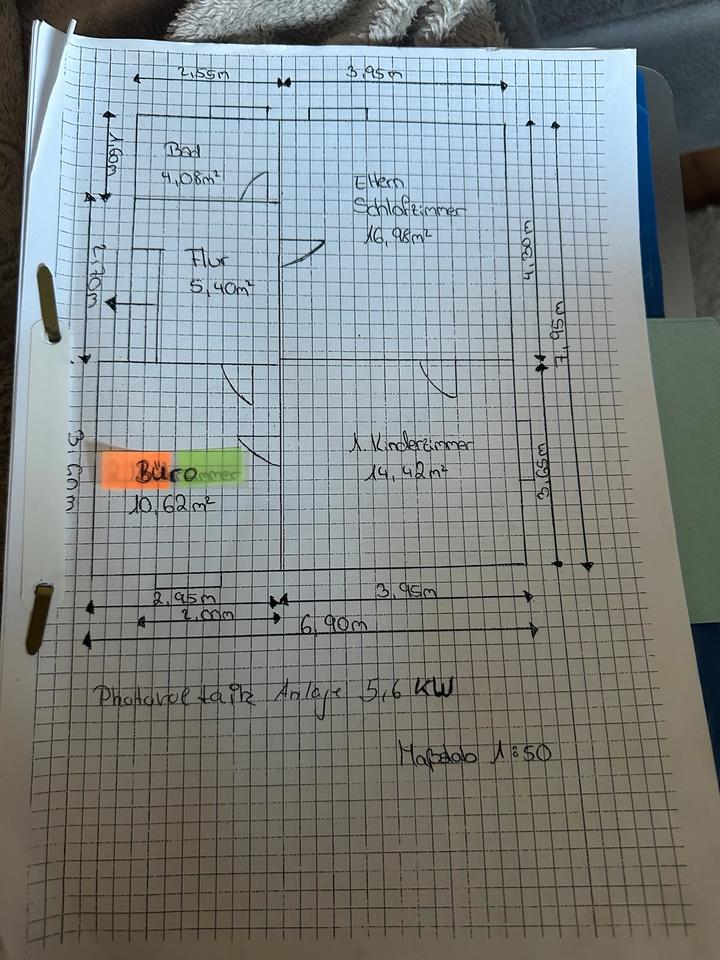 2,55m 3,95m
1,60m
Bad
4,08m²
Eltern
Schlafzimmer
16,98m²
4,30m
2,70m
Flur
5,40m²
7,95m
3,60m
Büro
10,62m²
1. Kinderzimmer
14,42m²
3,65m
2,95m 3,95m
2,00m
6,90m
Photovoltaik Anlage 5,6 KW
Maßstab 1:50